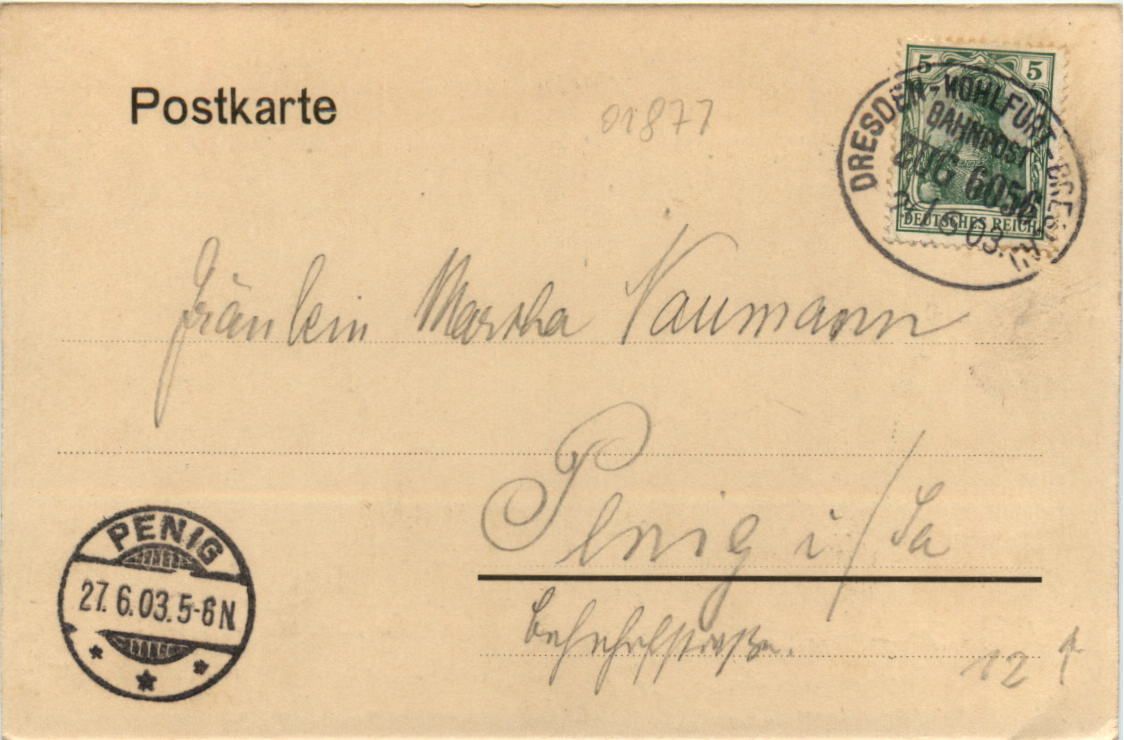 Postkarte
01877
5 5
DEUTSCHES REICH
DRESDEN-KOHLFURT-DRES
BAHNPOST
ZUG 6056
27 6 03
Fräulein Martha Naumann
Penig i/Sa
Bahnhofstraße.
PENIG
27. 6. 03. 5-6 N.
12